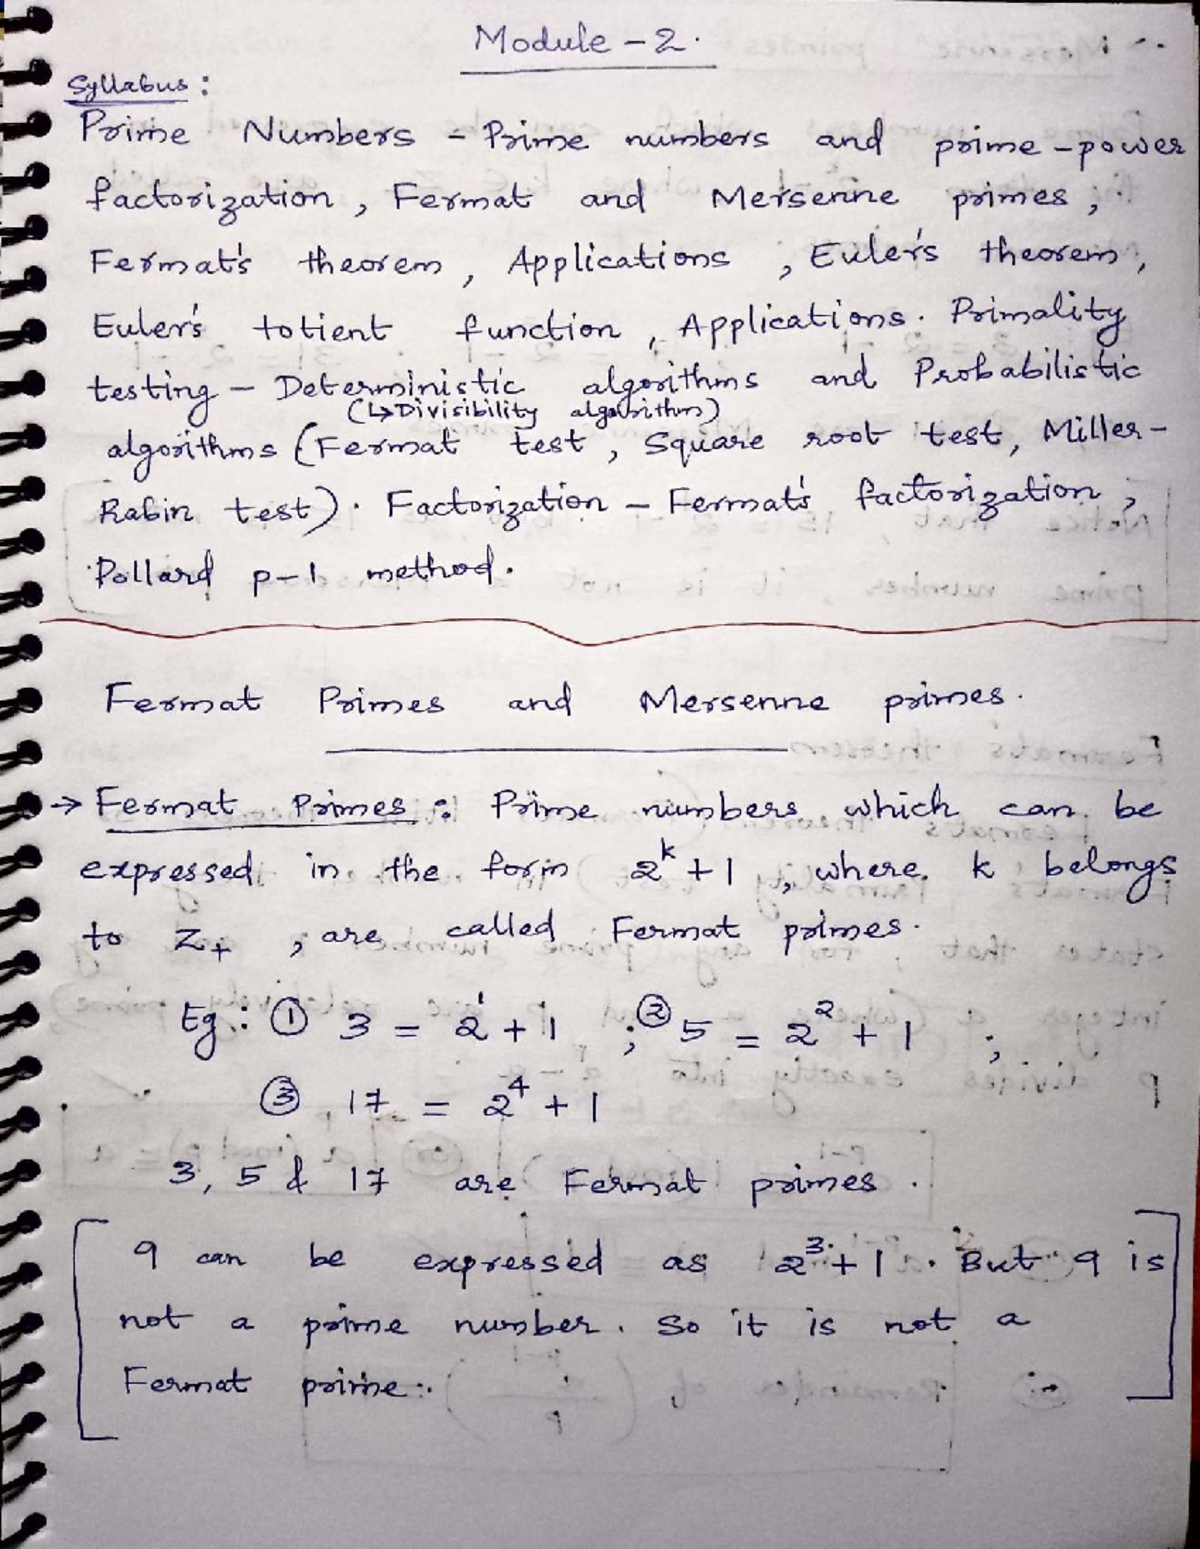 Module - 2.
Syllabus :
Prime Numbers - Prime numbers and prime-power
factorization, Fermat and Mersenne primes,
Fermat's theorem, Applications, Euler's theorem,
Euler's totient function, Applications. Primality
testing - Deterministic algorithms and Probabilistic
(↳Divisibility algorithm)
algorithms (Fermat test, Square root test, Miller-
Rabin test). Factorization - Fermat's factorization,
Pollard p-1 method.
Fermat Primes and Mersenne primes.
→ Fermat Primes : Prime numbers which can be
expressed in the form 2^k + 1, where k belongs
to Z+, are called Fermat primes.
Eg: ① 3 = 2^1 + 1 ; ② 5 = 2^2 + 1 ;
③ 17 = 2^4 + 1
3, 5 & 17 are Fermat primes.
[9 can be expressed as 2^3 + 1. But 9 is
not a prime number. So it is not a
Fermat prime.]